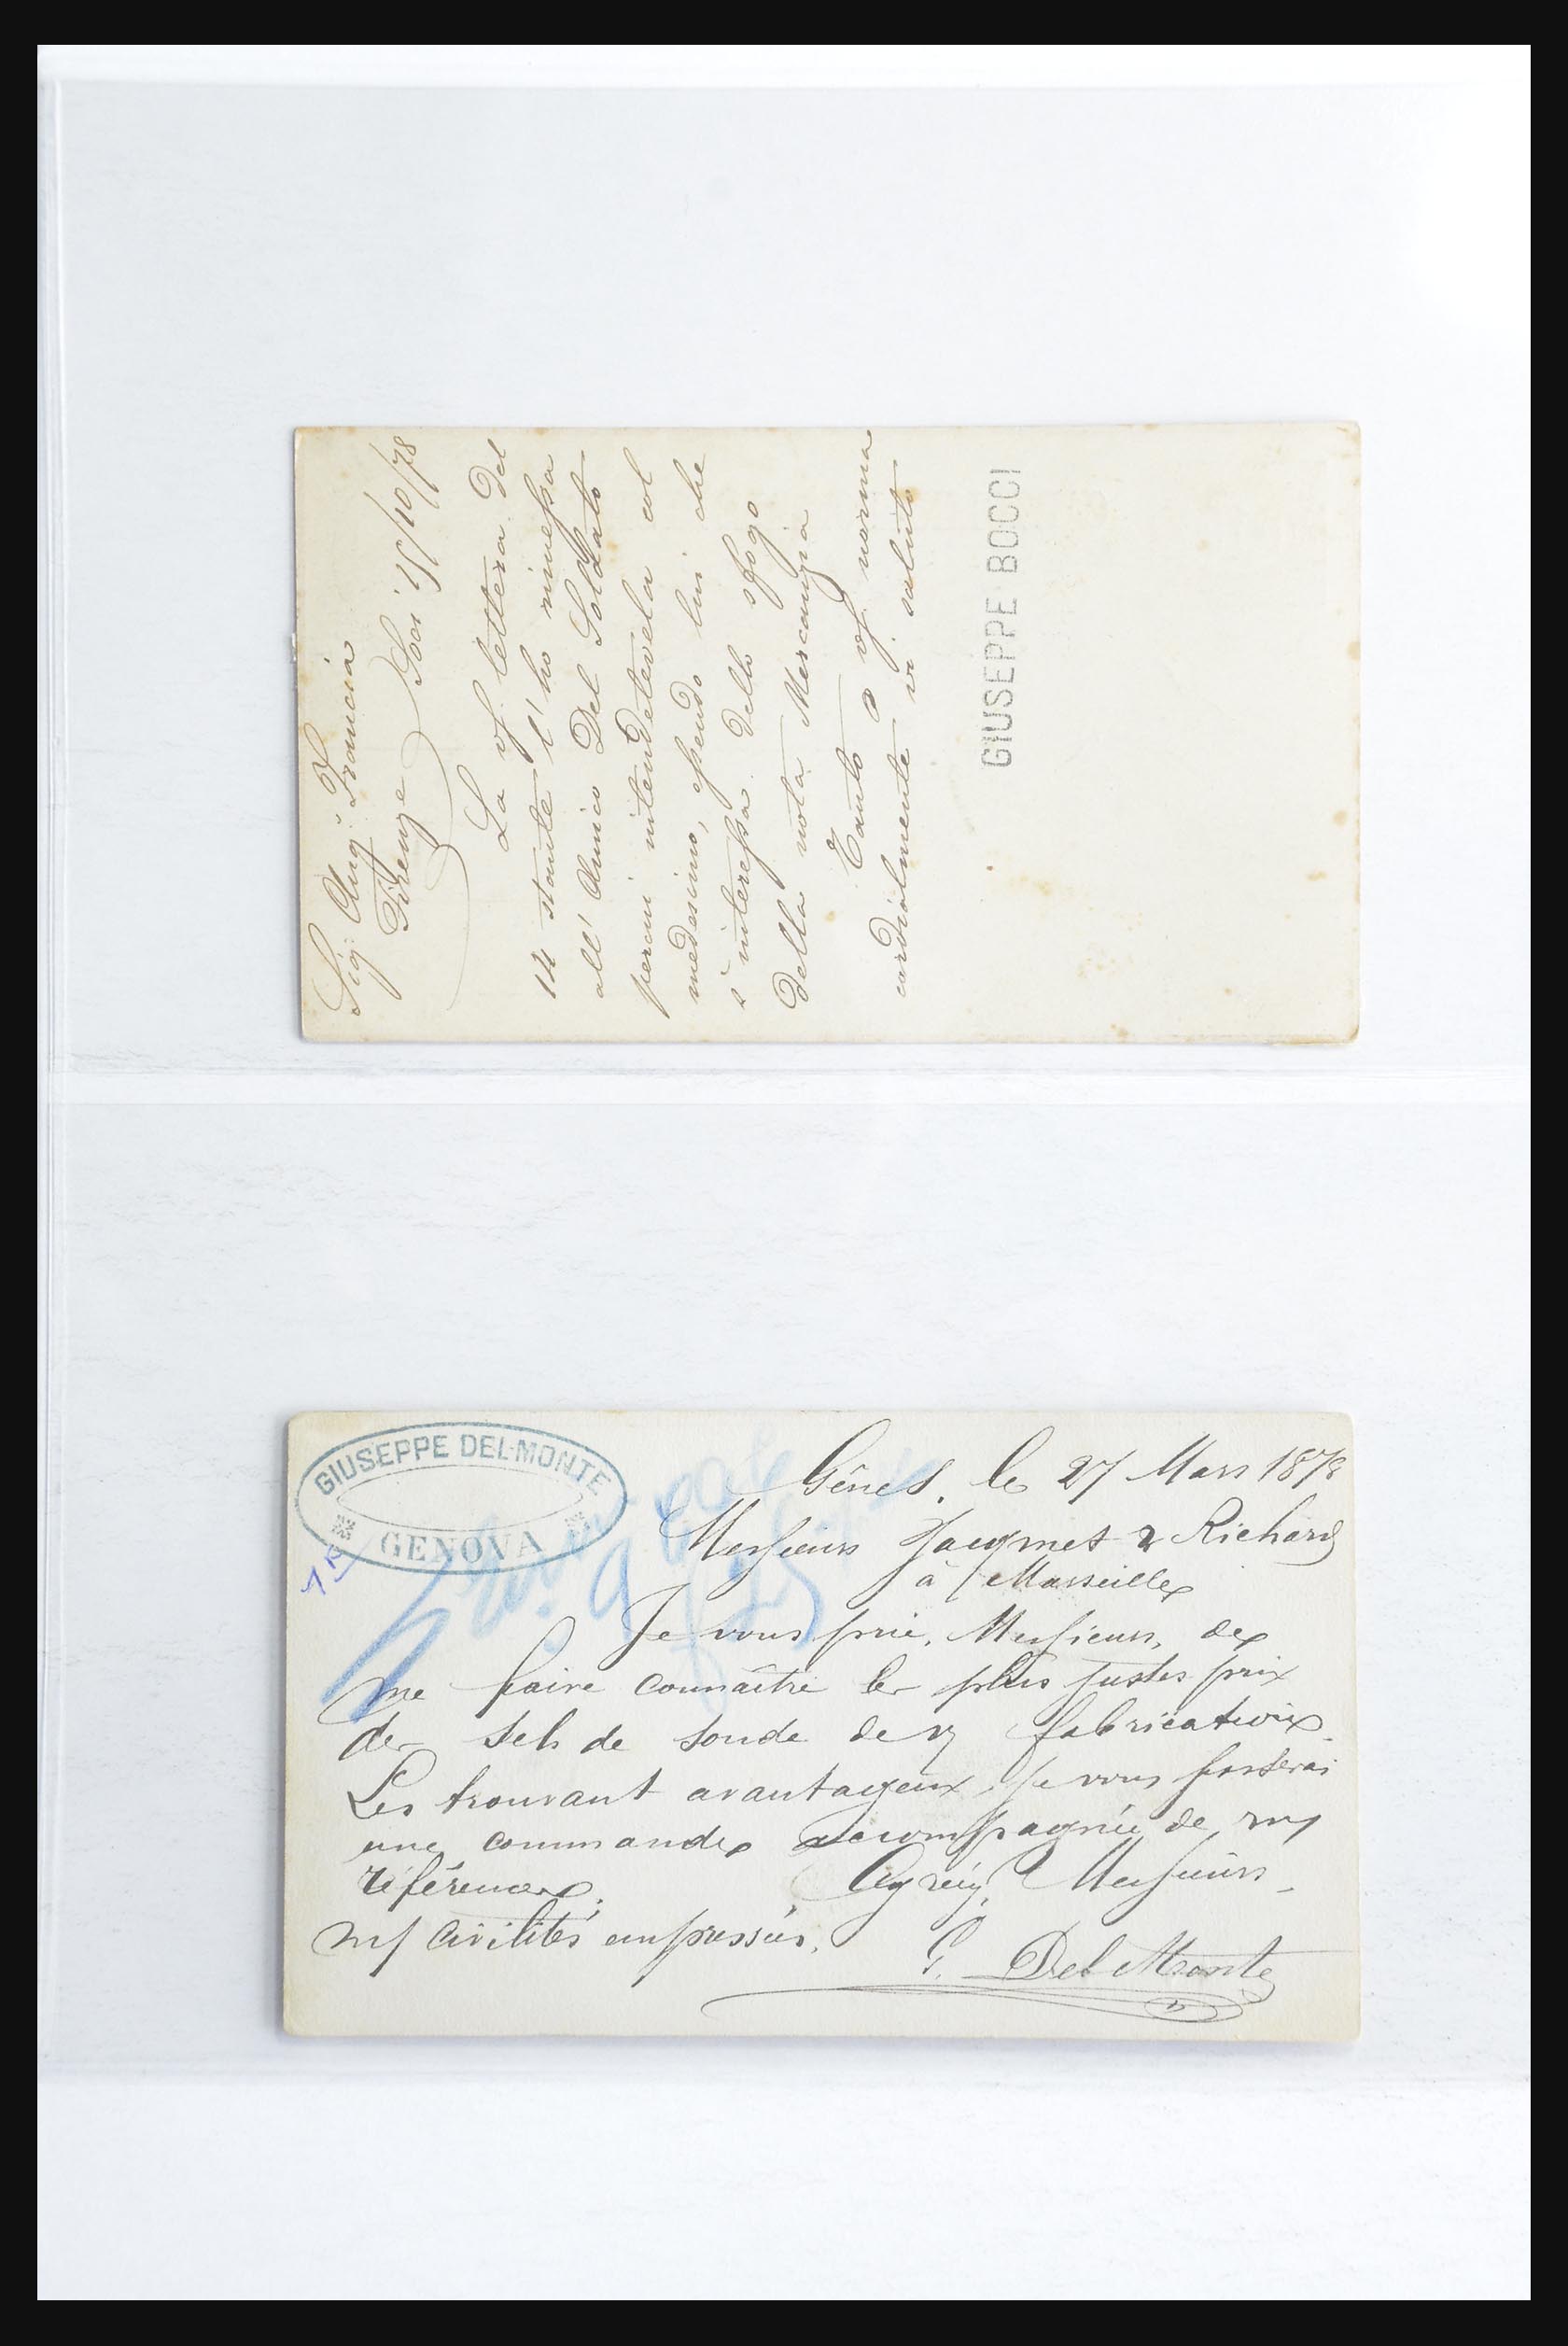 Sig: Aug: Francia
Firenze
Soci 15/10/78
La vs/ lettera del
14 stante l'ho rimessa
all' Amico Del Soldato
percui intendetevela col
medesimo, essendo lui che
s'interessa dello sfogo
della nota Mercanzia
Tanto a vs/ norma
cordialmente vi saluto
GIUSEPPE BOCCI
GIUSEPPE DEL-MONTE
GENOVA
Gênes, le 27 Mars 1878
Messieurs Jacqmet & Richard
à Marseille
Je vous prie, Messieurs, de
me faire connaître les plus justes prix
des sels de soude de v/ fabrication.
Les trouvant avantageux, je vous passerai
une commande accompagnée de mes
références.
Agréez, Messieurs
m/ civilités empressées.
G. Del Monte